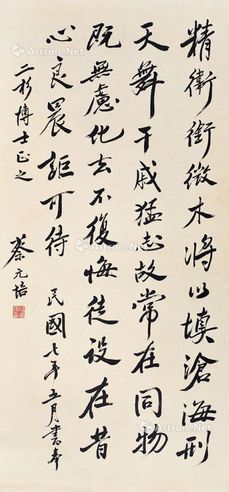 精衛銜微木將以填滄海刑
天舞干戚猛志故常在同物
既無慮化去不復悔徒設在昔
心良晨詎可待 民國七年五月書奉
二杉博士正之
蔡元培
Artron.Net